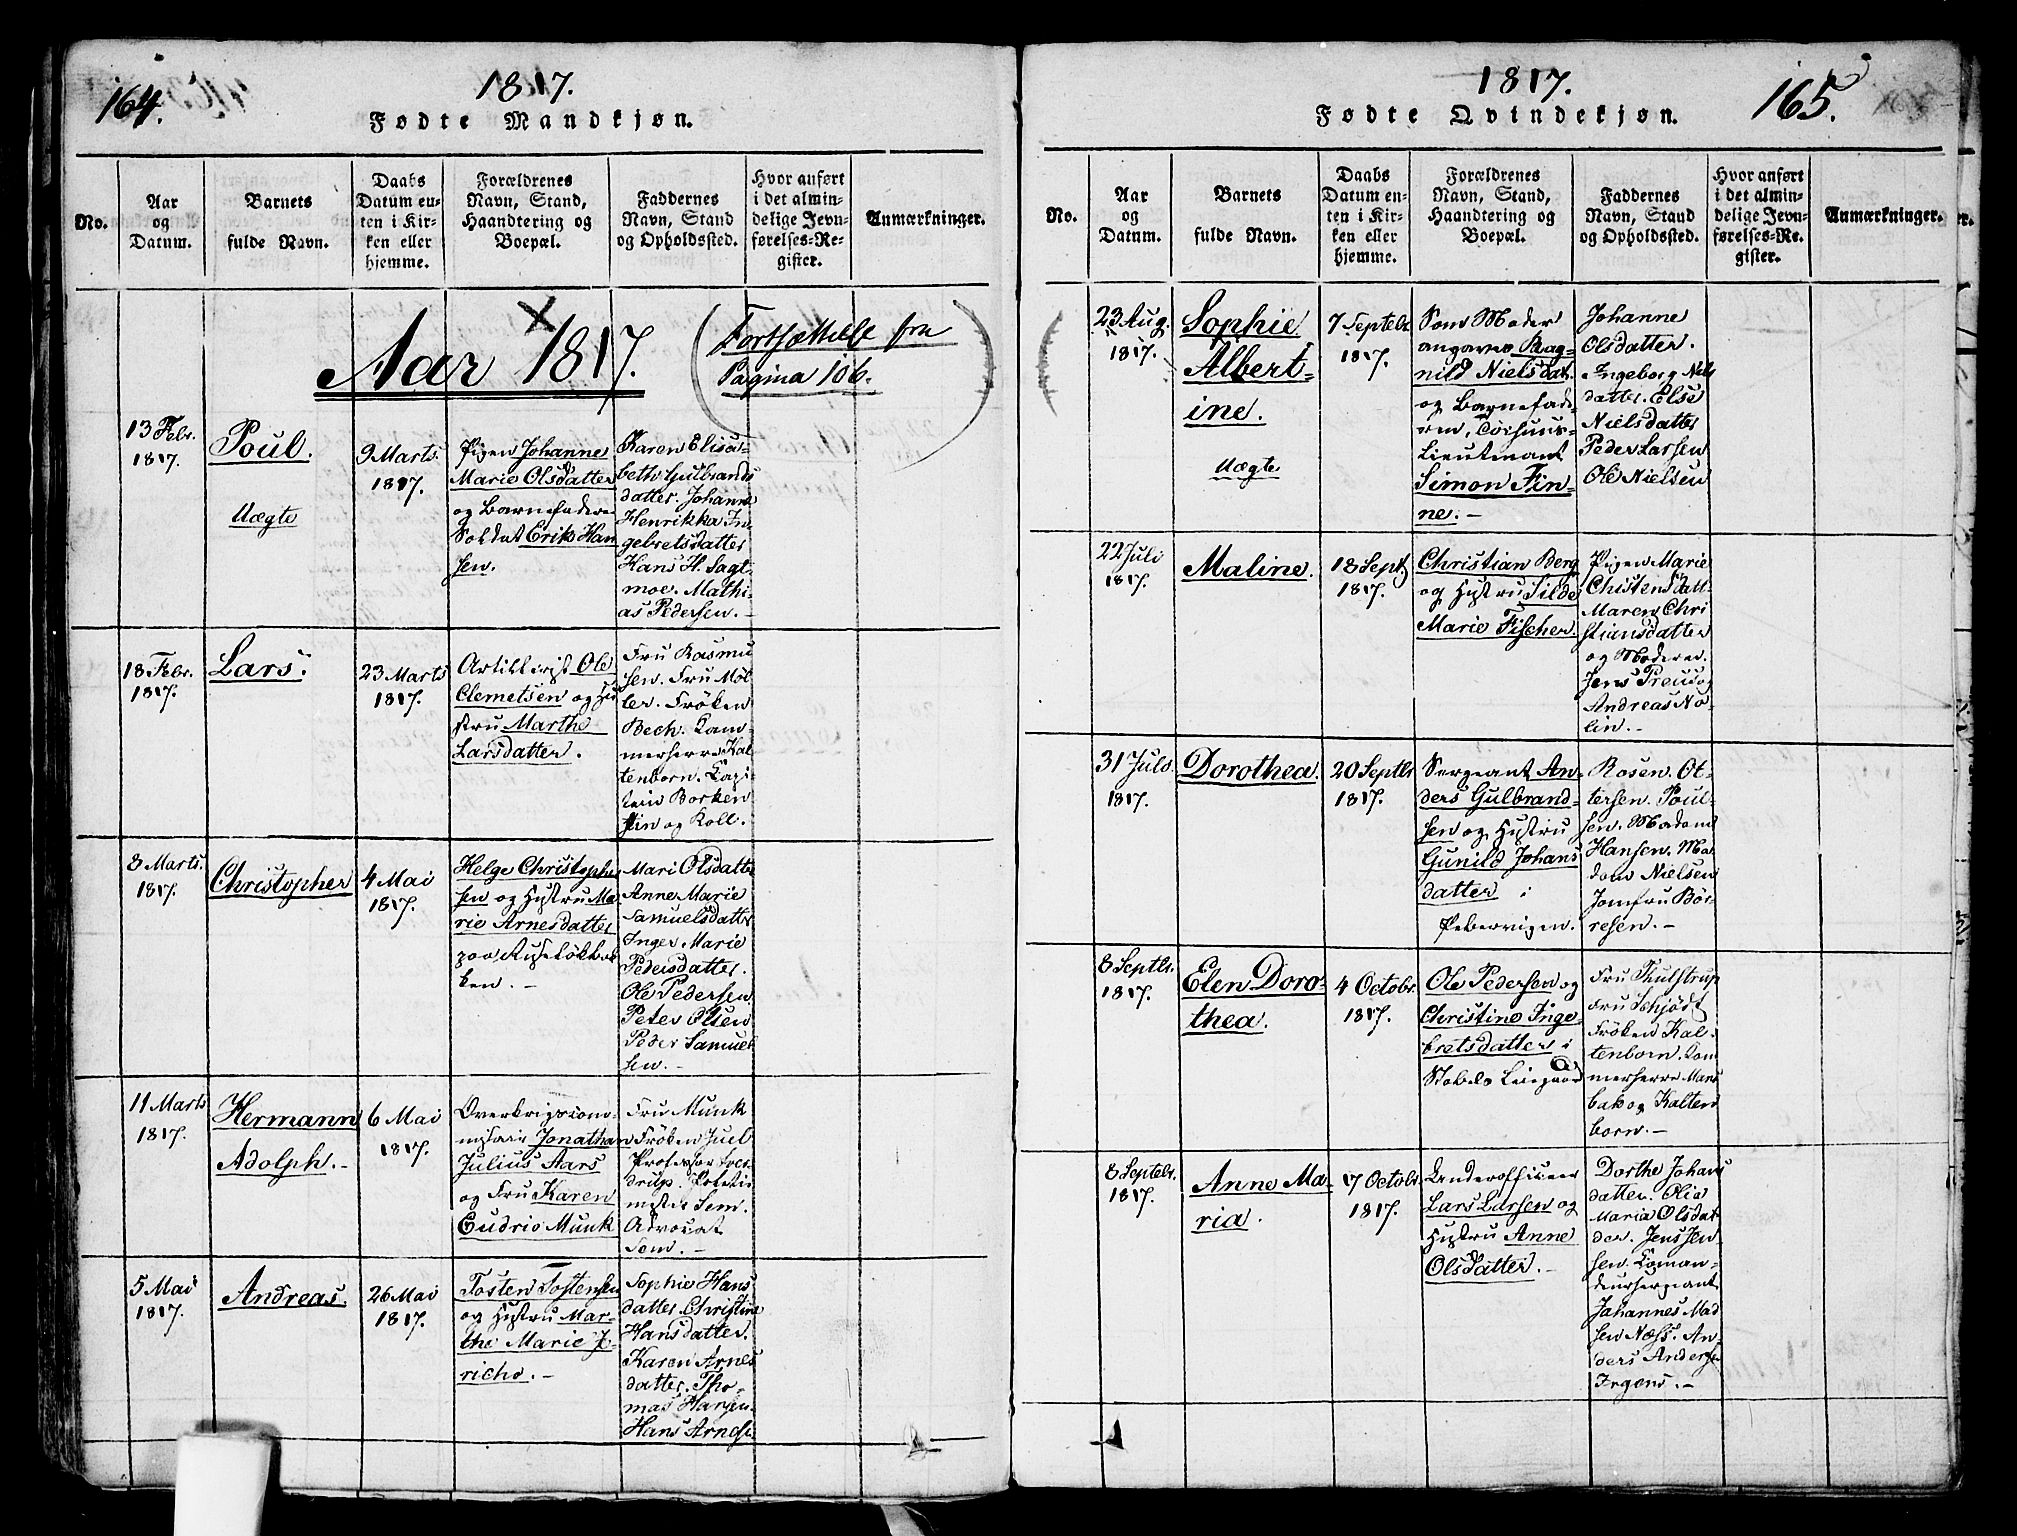 164.
1817.
Fødte Mandkjøn.
No.
Aar
og
Datum.
Barnets
fulde Navn.
Daabs
Datum en-
ten i Kir-
ken eller
hjemme.
Forældrenes
Navn, Stand,
Haandtering og
Boepæl.
Faddernes
Navn, Stand
og Opholdssted.
Hvor anført
i det almin-
delige Jevn-
førelses-Re-
gister.
Anmærkninger.
Aar 1817.
(Fortsættelse fra
Pagina 106.)
13 Febr.
1817.
Poul.
Uægte
9 Marts
1817.
Pigen Johanne
Marie Olsdatter
og Barnefader
Soldat Erik Han
sen.
Karen Elisa-
beth Gulbrands
datter. Johanne
Henrikka In-
gebretsdatter
Hans H. Sagt-
moe. Mathi-
as Pedersen. –
18 Febr.
1817.
Lars.
23 Marts
1817.
Artillerist Ole
Clemetsen og Hu
stru Marthe
Larsdatter.
Fru Rasmu
sen. Fru Møl-
ler. Frøken
Bech. Kam-
merherre Kal-
tenborn. Capi-
tain Borken
stin og Koll.
8 Marts
1817.
Christopher
4 Mai
1817.
Helge Christophe
sen og Hustru Ma
rie Arnesdatter
paa Ruseløkbak
ken. –
Mari Olsdatte
Anne Marie
Samuelsdatter
Inger Marie
Pedersdatter.
Ole Pedersen
Peter Olsen
Peder Samuel
sen. –
11 Marts
1817.
Hermann
Adolph. –
6 Mai
1817.
Overkrigscom-
missair Jonathan
Julius Aars
og Fru Karen
Gudrio Munk
Fru Munk
Frøken Juel
Professor Sver-
drup.
Sem.
Advocat
Sem. –
5 Mai
1817.
Andreas.
26 Mai
1817.
Tosten Tostensen
og Hustru Mar-
the Marie J-
richo. –
Sophie Hans
datter. Christine
Hansdatter.
Karen Arnes
datter. Tho-
mas Hansen
Hans Arnese
165.
1817.
Fødte Qvindekjøn.
No.
Aar
og
Datum.
Barnets
fulde Navn.
Daabs
Datum en-
ten i Kir-
ken eller
hjemme.
Forældrenes
Navn, Stand,
Haandtering og
Boepæl.
Faddernes
Navn, Stand
og Opholdssted.
Hvor anført
i det almin-
delige Jevn-
førelses-Re-
gister.
Anmærkninger.
23 Aug.
1817.
Sophie
Albert-
ine.
Uægte
7 Septbr
1817.
Som Moder
angaves Rag-
nild Nielsdat.
og Barnefade-
ren,
Lieutnant
Simon Fin-
ne. –
Johanne
Olsdatter.
Ingeborg Niels
datter. Else
Nielsdatter
Peder Larsen
Ole Nielsen
22 Juli
1817.
Maline.
18 Sept.
1817.
Christian Berg
og Hustru Silde
Marie Fischer.
Pigen Marie
Chistensdatt-
Maren Chri
stiansdatter
og Moderen.
Jens Preus og
Andreas No-
lin. –
31 Juls.
1817.
Dorothea.
20 Septbr
1817.
Sergeant An-
ders Gulbrand-
sen og Hustru
Gunild Johans
datter i
Pibervigen.
Rosen. Ot-
tersen. Poul-
sen. Madam
Hansen. Ma
dam Nielsen
Jomfru Bør-
resen. –
8 Septbr.
1817.
Elen Doro-
thea.
4 Octobr.
1817.
Ole Pedersen og
Christine Inge-
bretsdatter i
Stabels Leiegaard
Fru Thulstrup
Fru Schjødt
Frøken Kal-
tenborn. Kam
merherre Mans
bak og Kalten
born. –
8 Septbr.
1817.
Anne Ma-
ria.
7 Octobr.
1817.
Underofficeer
Lars Larsen og
Hustru Anne
Olsdatter. –
Dorthe Johans
datter. Olia
Maria Olsdat
der. Jens Jen
sen. Coman-
deursergeant
Johannes Mad
sen Næss. An-
ders Anderse
Irgens. –